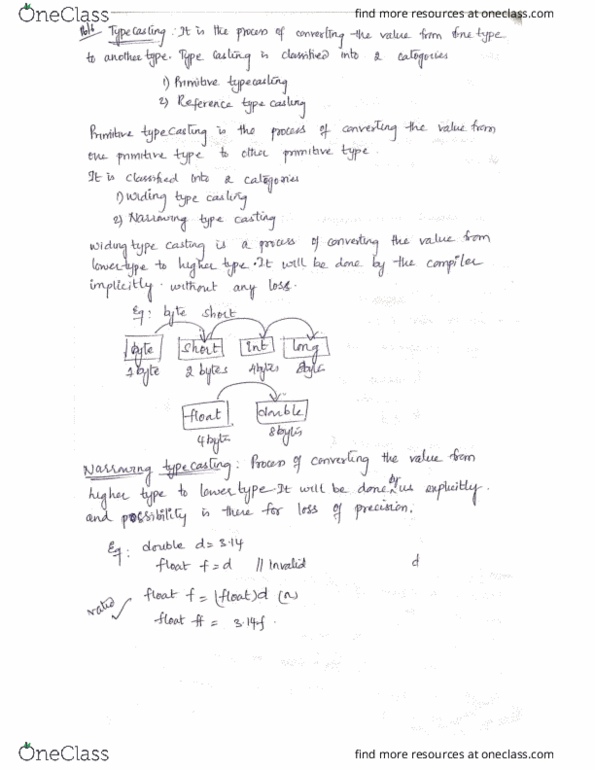 OneClass
find more resources at oneclass.com
Type Casting : It is the process of converting the value from one type
to another type. Type Casting is classified into 2 categories
1) Primitive typecasting
2) Reference type casting
Primitive type casting is the process of converting the value from
one primitive type to other primitive type.
It is classified into 2 categories
1) Widing type casting
2) Narrowing type casting
Widing type casting is a process of converting the value from
lower type to higher type. It will be done by the compiler
implicitly without any loss.
Eg : byte short
byte short int long
1 byte 2 bytes 4 bytes 8 bytes
float double
4 byte 8 bytes
Narrowing typecasting : Process of converting the value from
higher type to lower type. It will be done by us explicitly.
and possibility is there for loss of precision.
Eg : double d = 3.14
float f = d // Invalid
d
float f = (float)d
float ff = 3.14f.
OneClass
find more resources at oneclass.com